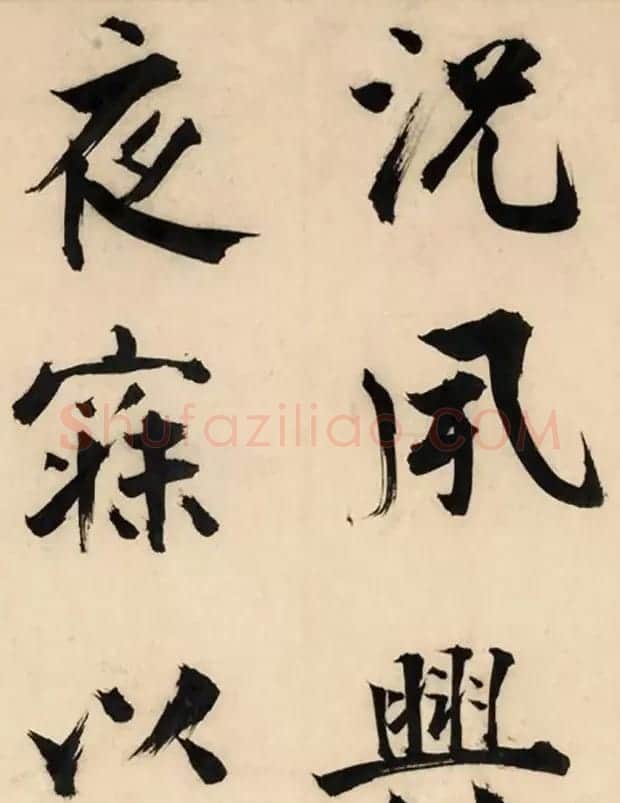 況夙興
夜寐以
Shufaziliao.COM